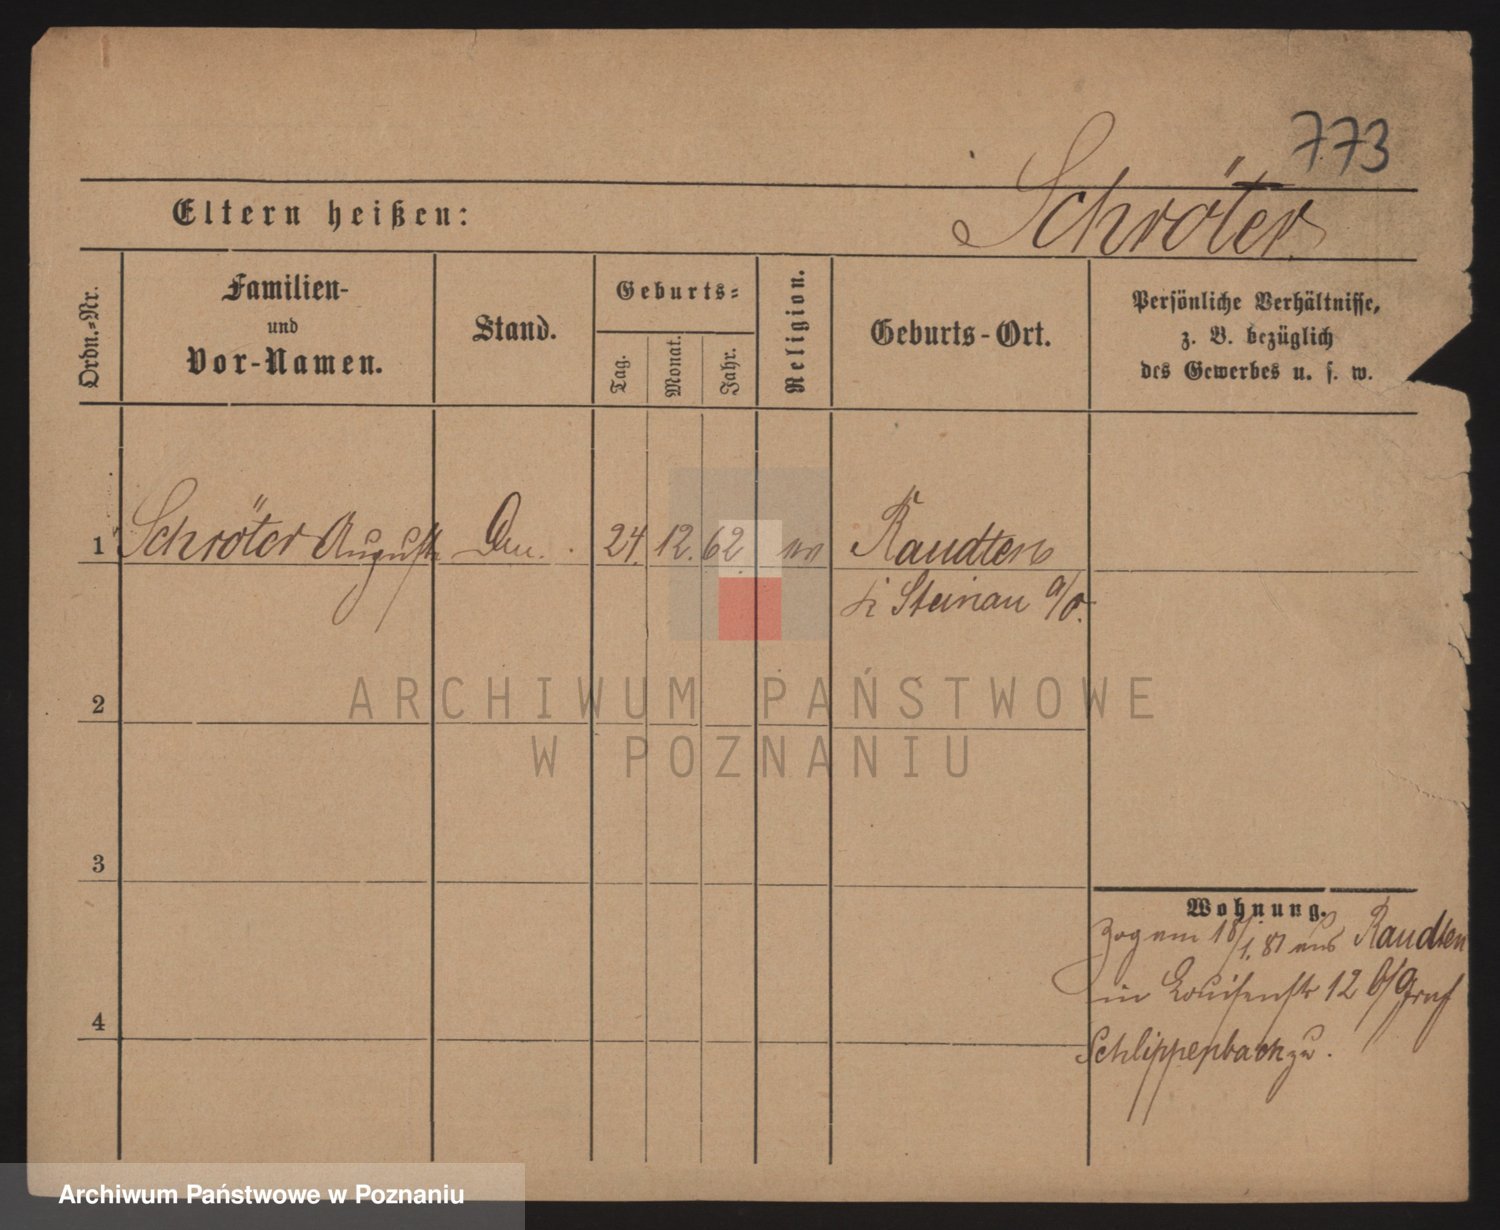 773
Schröter
Eltern heißen:
Ordn.=Nr.
Familien-
und
Vor-Namen.
Stand.
Geburts=
Tag.
Monat.
Jahr.
Religion.
Geburts-Ort.
Persönliche Verhältnisse,
z. B. bezüglich
des Gewerbes u. s. w.
1 Schröter August 24. 12. 62. Raudten
Steinau a/O.
ARCHIWUM PAŃSTWOWE
W POZNANIU
2
3
4
Wohnung.
zog am 18/1. 81 aus Raudten
in Louisenstr 12 b/Graf
Schlippenbach zu.
Archiwum Państwowe w Poznaniu